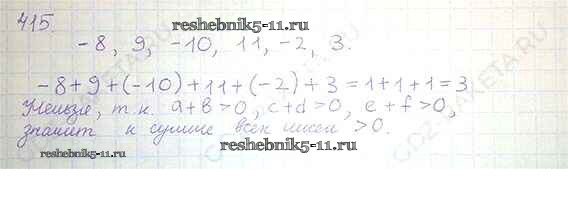 415.
reshebnik5-11.ru
-8, 9, -10, 11, -2, 3.
-8+9+(-10)+11+(-2)+3=1+1+1=3
Нельзя, т.к. a+b>0, c+d>0, e+f>0,
значит и сумма всех чисел >0.
reshebnik5-11.ru